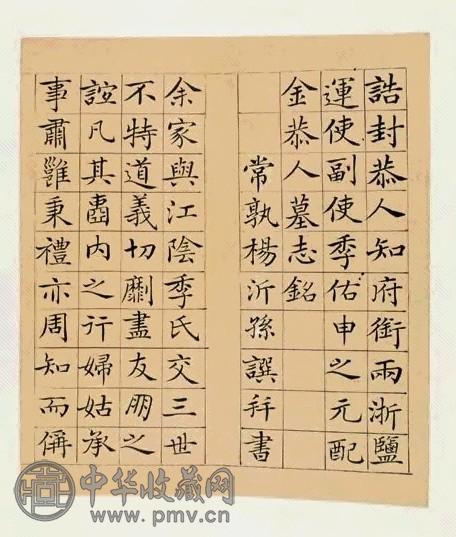 誥封恭人知府銜兩浙鹽
運使副使季佑申之元配
金恭人墓志銘
常孰楊沂孫譔幷書
余家與江陰季氏交三世
不特道義切劘盡友朋之
誼凡其壼内之行婦姑承
事肅雝秉禮亦周知而偁
中华收藏网
www.pmv.cn